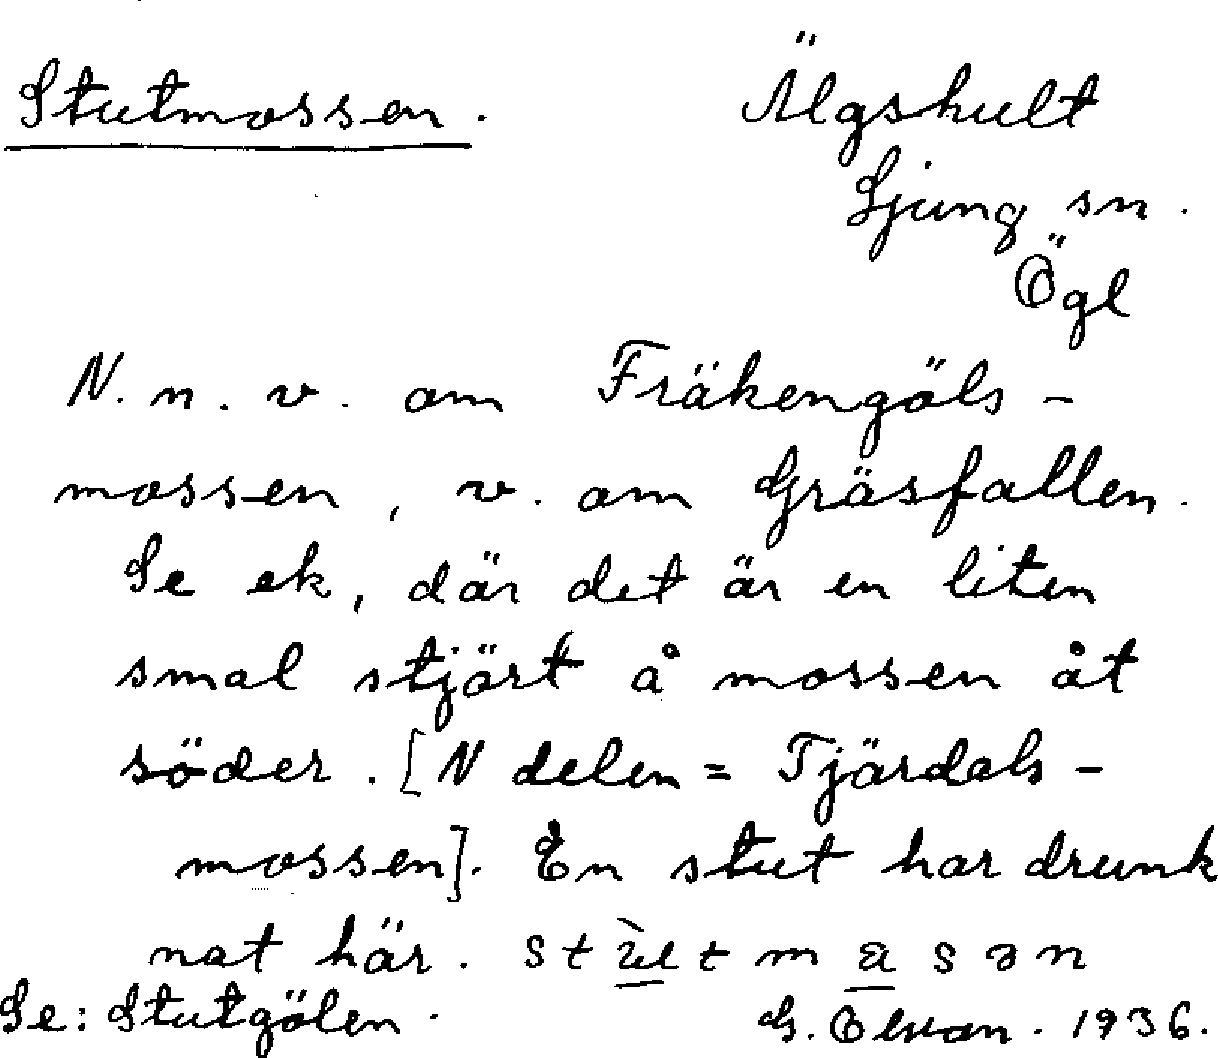 Stutmossen. Älgshult
Ljung sn.
Ögl
N. n. v. om Fräkengöls-
mossen, v. om Gräsfallen.
Se ek, där det är en liten
smal stjärt å mossen åt
söder. [N delen = Tjärdals-
mossen]. En stut har drunk
nat här.
Se: Stutgölen. G. 1936.